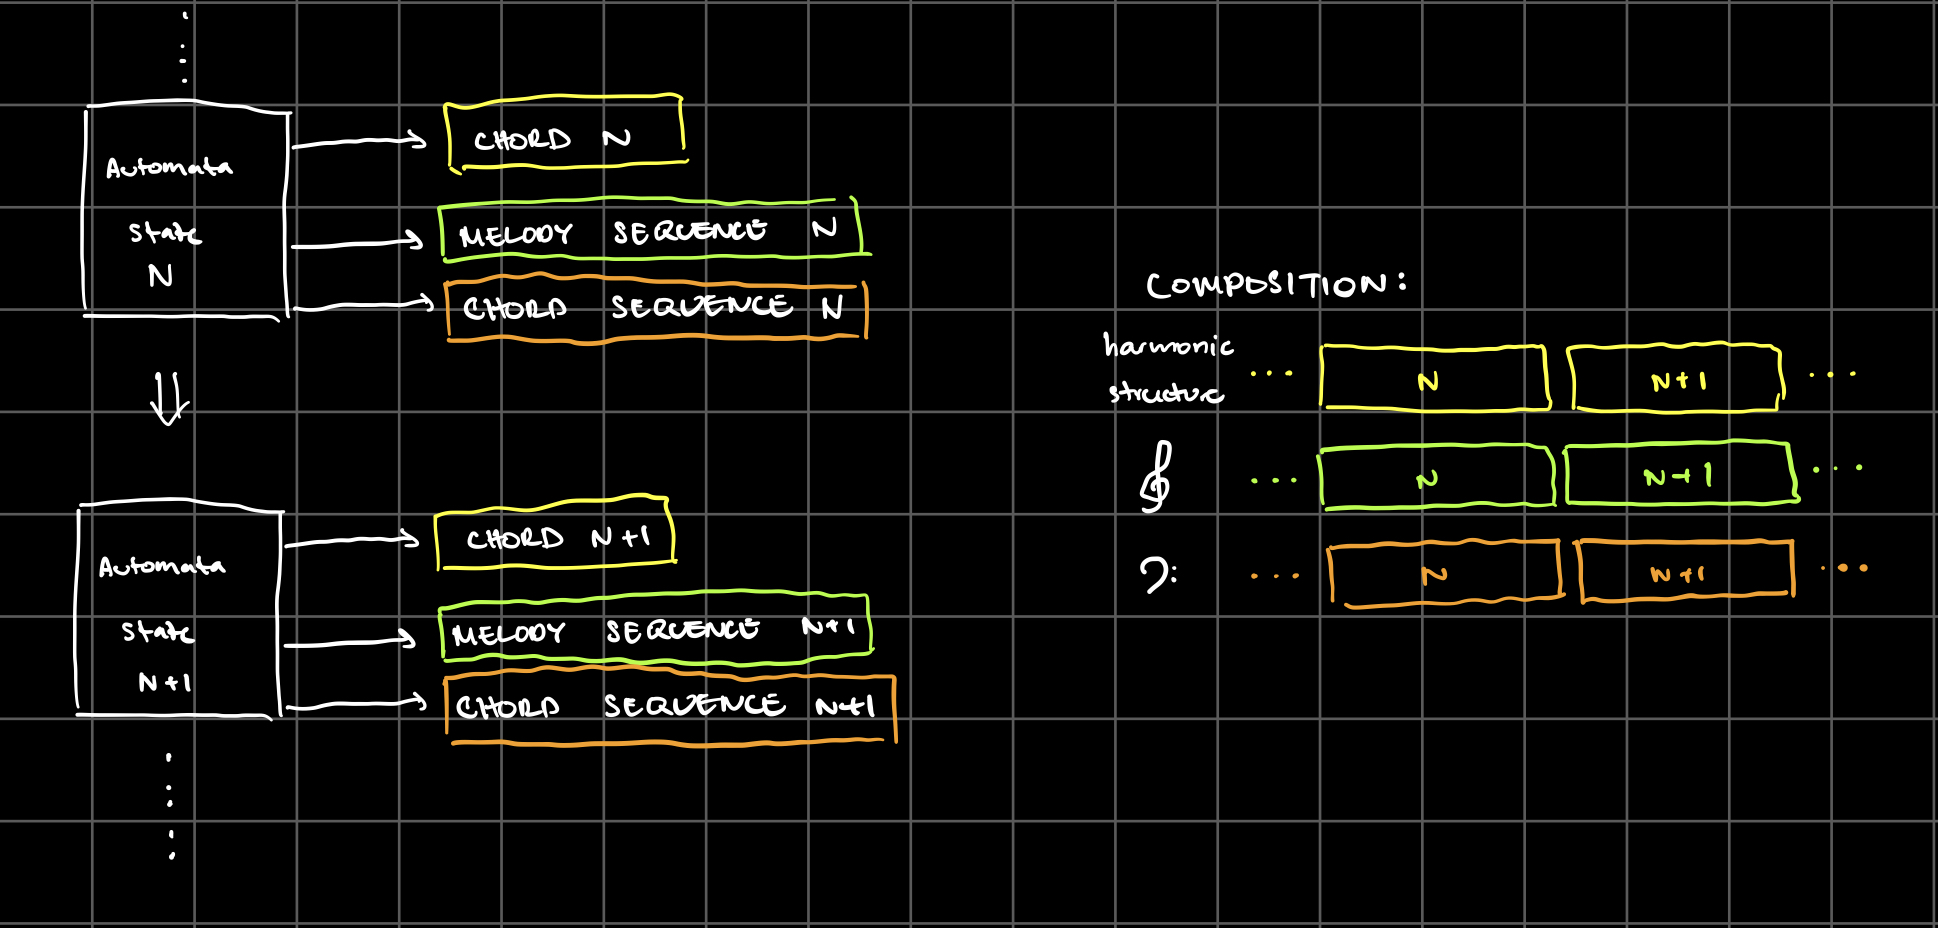 Automata
State
N
CHORD N
MELODY SEQUENCE N
CHORD SEQUENCE N
Automata
State
N+1
CHORD N+1
MELODY SEQUENCE N+1
CHORD SEQUENCE N+1
COMPOSITION:
harmonic
structure
... N N+1 ...
... N N+1 ...
... N N+1 ...